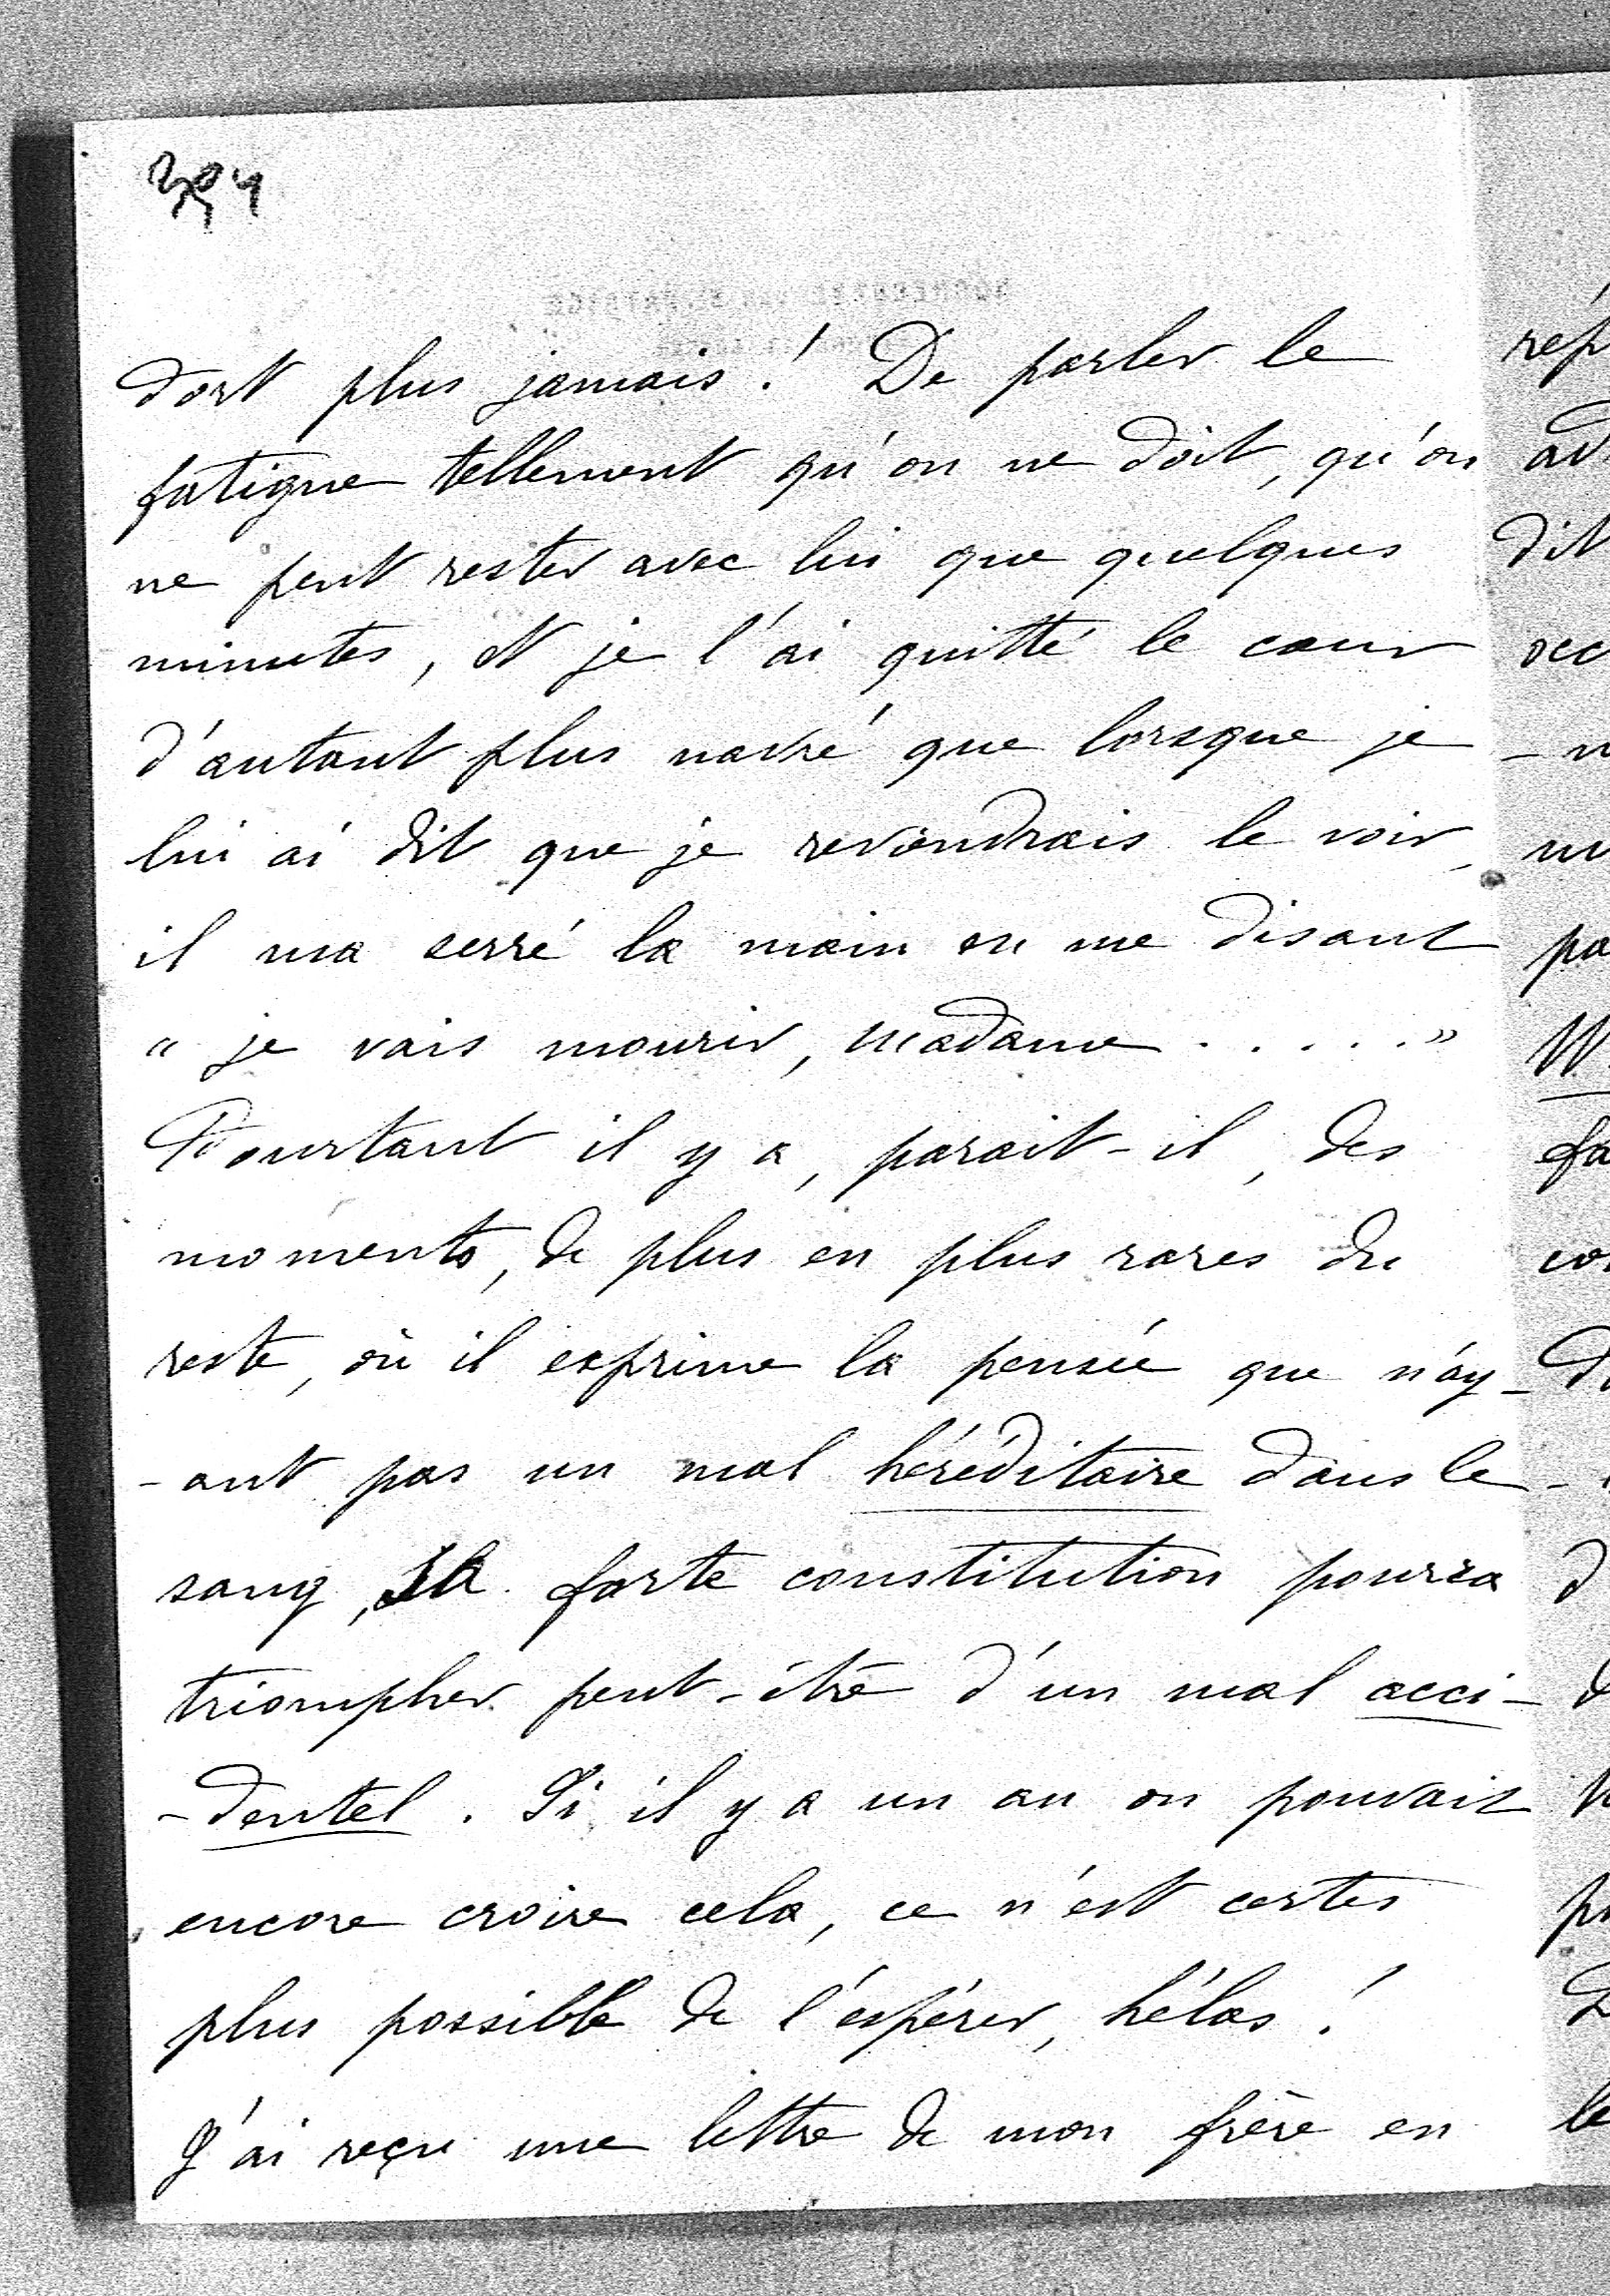 dort plus jamais ! De parler le
fatigue tellement qu'on ne doit, qu'on
ne peut rester avec lui que quelques
minutes, et je l'ai quitté le cœur
d'autant plus navré que lorsque je
lui ai dit que je reviendrais le voir,
il m'a serré la main en me disant
“ je vais mourir, Madame . . . . . ”
Pourtant il y a, parait-il, des
moments, de plus en plus rares du
reste, où il exprime la pensée que n'ay-
-ant pas un mal héréditaire dans le
sang, sa forte constitution pourra
triompher peut-être d'un mal acci-
-dentel. Si il y a un an on pouvait
encore croire cela, ce n'est certes
plus possible de l'espérer, hélas !
J'ai reçu une lettre de mon frère en